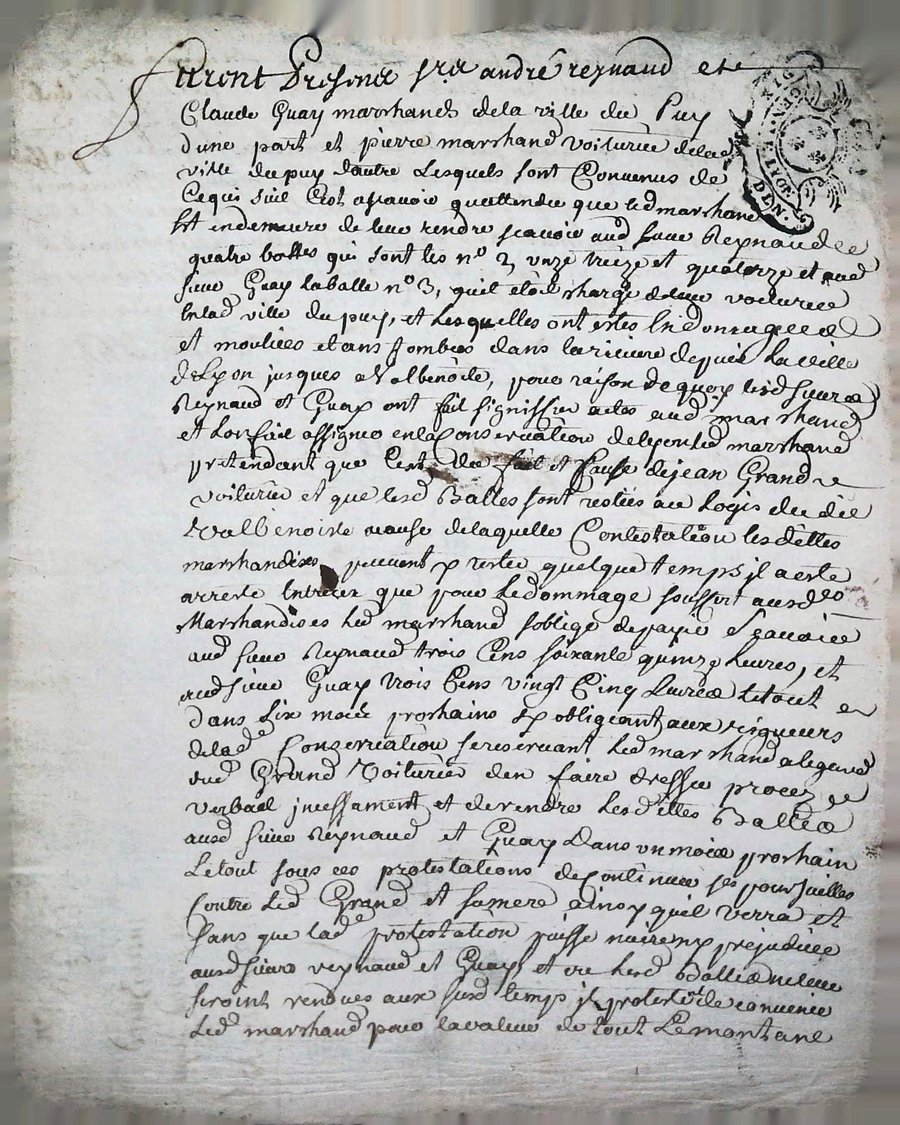 furent presens srs andré reynaud et
Claude Guay marchands dela ville du Puy
dune part et pierre marchand voiturier delad
ville du puy dautre Lesquels sont Convenus de
Cequi suit Cest ascavoir quattendu que led marchand
Est endemeure de leur rendre scavoir aud sieur Reynaud
quatre balles qui sont les n° 2, unze treize et quatorze et aud
sieur Guay laballe n° 3, quil etoit chargé voiturer
Enlad ville du puy, et Lesquelles ont estes Endomagees
et mouliees etans tombees dans lariviere depuis La ville
deLyon jusques a Valbenoite, pour raison dequoy lesd sieurs
Reynaud et Guay ont fait signiffier actes aud marchand
et Lonfait assigner enlaConservation delyon led marchand
pretendant que Cest du fait et fause dejean Grand
voiturier et que lesd Balles sont restées au Logis du dit
Valbenoiste acause delaquelle Contestation lesdittes
marchandises peuvent y rester quelque temps il a esté
arresté Entreux que pour Ledommage souffert ausd
Marchandises Led marchand soblige depayer Scavoir
aud sieur Reynaud trois Cens soixante quinze Livres, et
aud sieur Guay trois Cens vingt Cinq Livres letout
dans six mois prochains sy obligeant aux rigueurs
delad Conservation se reservant Led marchand alegard
dud Grand Voiturier den faire dresser procez
verbail jncessament et derendre Lesdittes Balles
ausd sieur Reynaud et Guay dans unmois prochain
Letout sous ces protestations deContinuer ses poursuittes
Contre Led Grand et samere ainsy quil verra et
sans que lad protestation puisse nuire ny prejudicier
ausd sieurs reynaud et Guay, et ou Lesd Balles ne leur
seroint rendues aux susd temps jls protestent de convenir
Led marchand pour lavaleur de tout Lemontant
LYON
DEN.